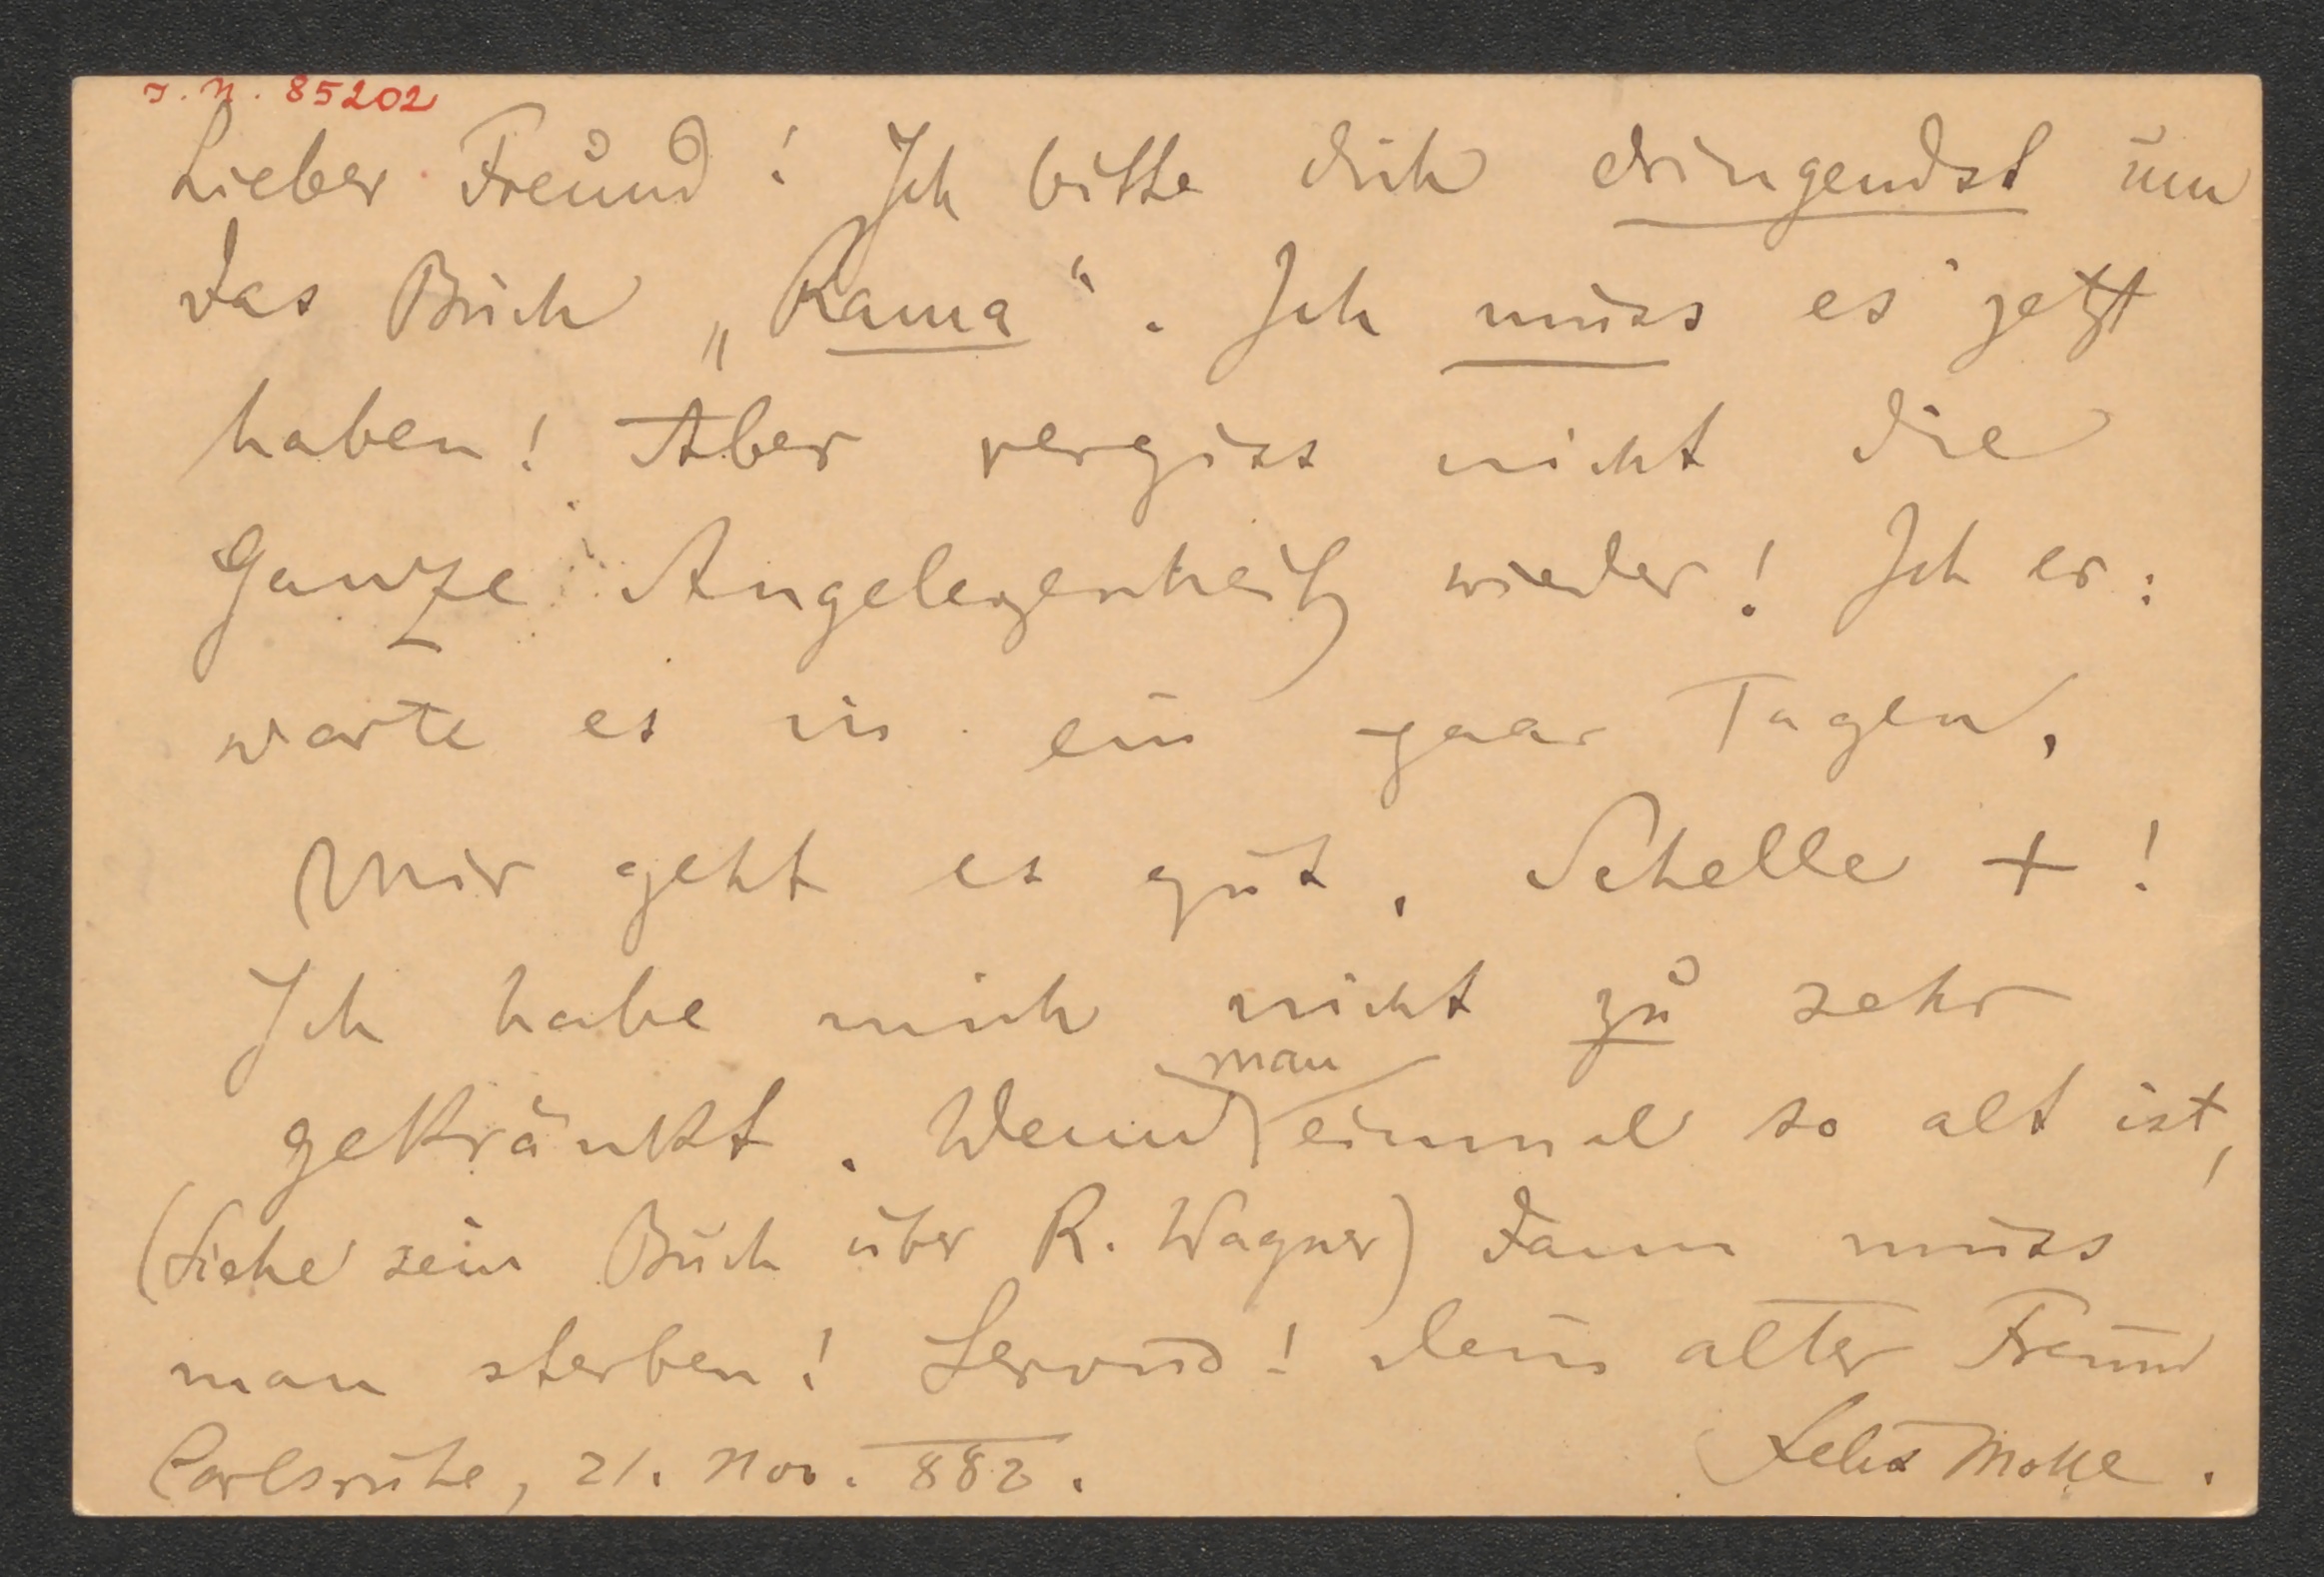 I. N. 85202
Lieber Freund! Ich bitte dich dringendst um
das Buch „Rama“. Ich muss es jetzt
haben! Aber vergiss nicht die
Ganze Angelegenheit wieder! Ich er:
warte es in ein paar Tagen.
Mir geht es gut. Schelle +!
Ich habe mich nicht zu sehr
man
gekränkt. Wenn einmal so alt ist,
(siehe sein Buch über R. Wagner) dann muss
man sterben! Servus! dein alter Freund
Carlsruhe, 21. Nov. 882. Felix Mottl.